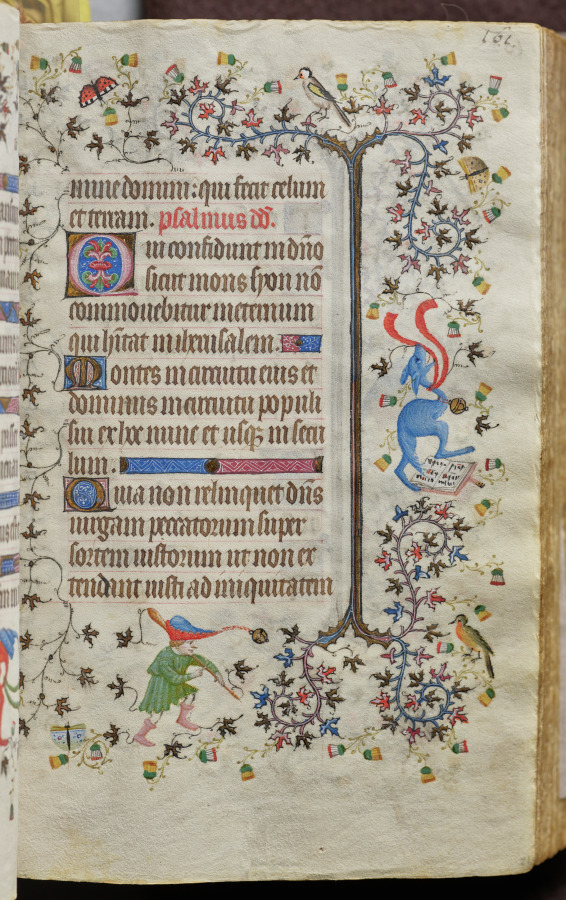 162.
mine domini: qui fecit celum
et terram. psalmus dd.
Qui confidunt in dño
sicut mons syon nō
commovebitur in eternum
qui hītat in iherusalem.
Montes in circuitu eius et
dominus in circuitu populi
sui ex hoc nunc et usq; in secu
lum.
Quia non relinquet dñs
virgam peccatorum super
sortem iustorum ut non ex
tendant iusti ad iniquitatem